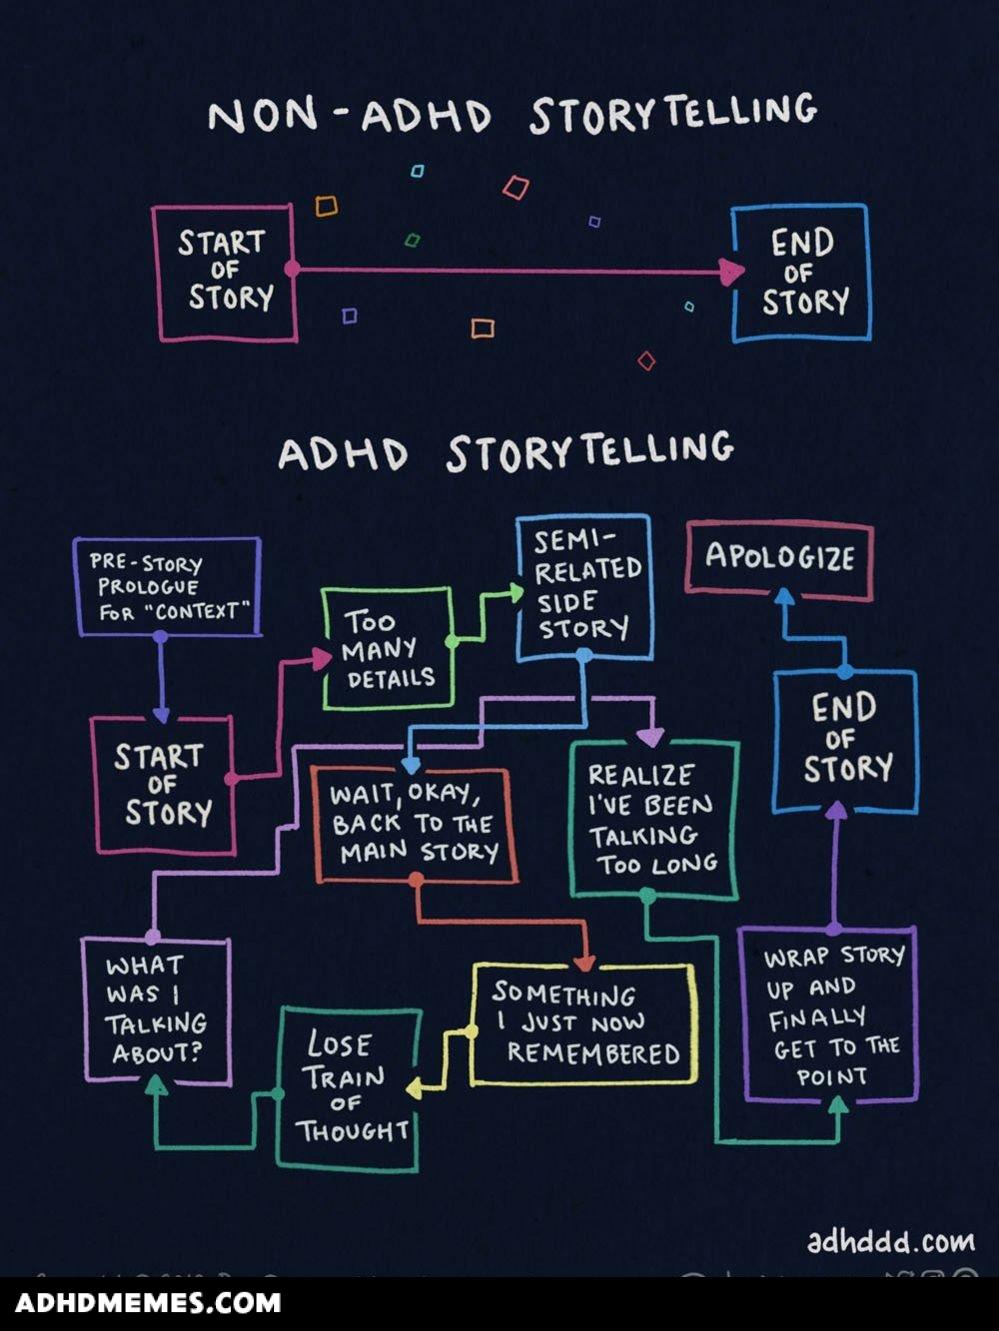 NON-ADHD STORYTELLING
START
OF
STORY
END
OF
STORY
ADHD STORYTELLING
PRE-STORY
PROLOGUE
FOR "CONTEXT"
START
OF
STORY
TOO
MANY
DETAILS
SEMI-
RELATED
SIDE
STORY
WAIT, OKAY,
BACK TO THE
MAIN STORY
SOMETHING
I JUST NOW
REMEMBERED
LOSE
TRAIN
OF
THOUGHT
WHAT
WAS I
TALKING
ABOUT?
REALIZE
I'VE BEEN
TALKING
TOO LONG
WRAP STORY
UP AND
FINALLY
GET TO THE
POINT
END
OF
STORY
APOLOGIZE
adhddd.com
ADHDMEMES.COM